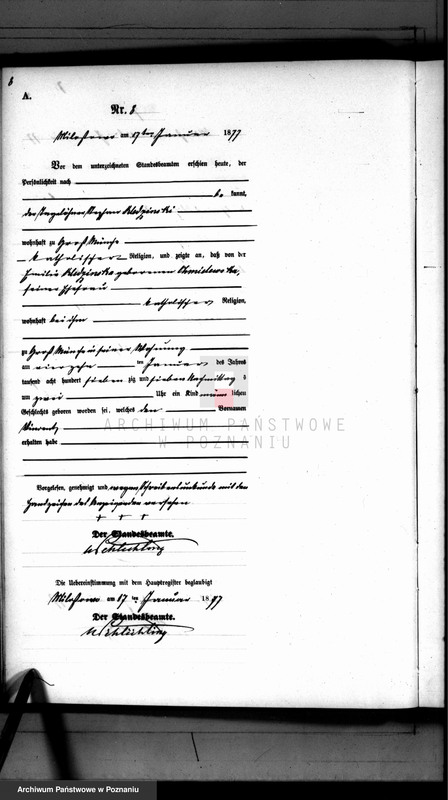 6
A.
Nr. 8
Milostowo am 17ten Januar 1877
Vor dem unterzeichneten Standesbeamten erschien heute, der
Persönlichkeit nach
be kannt,
der Tagelöhner Stephan
wohnhaft zu Groß Münche
katholischer Religion, und zeigte an, daß von der
Emilie geborenen
seiner Ehefrau
katholischer Religion,
wohnhaft bei ihm
zu Groß Münche in seiner Wohnung
am vierzehn ten Januar des Jahres
tausend acht hundert sieben zig und sieben Nachmittag s
um zwei Uhr ein Kind männ lichen
Geschlechts geboren worden sei, welches den Vornamen
Vincent
erhalten habe
ARCHIWUM PAŃSTWOWE
W POZNANIU
Vorgelesen, genehmigt und wegen Schreibensunkunde mit dem
Handzeichen des Anzeigenden versehen
+ + +
Der Standesbeamte.
Die Uebereinstimmung mit dem Hauptregister beglaubigt
Milostowo am 17 ten Januar 1877
Der Standesbeamte.
Archiwum Państwowe w Poznaniu